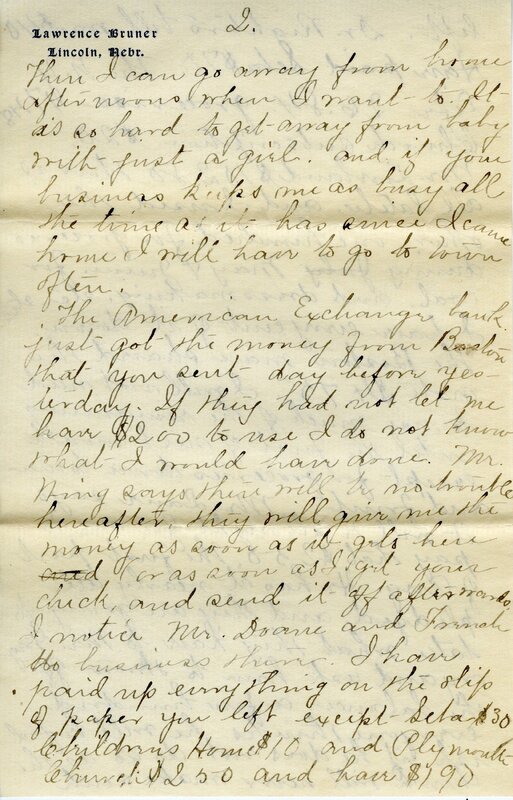 2.
Lawrence Bruner
Lincoln, Nebr.
Then I can go away from home
afternoons when I want to. It
is so hard to get away from baby
with just a girl. and if your
business keeps me as busy all
the time as it has since I came
home I will have to go to town
often.
The American Exchange bank
just got the money from Boston
that you sent day before yes-
terday. If they had not let me
have $200 to use I do not know
what I would have done. Mr.
says there will be no trouble
hereafter, they will give me the
money as soon as it gets here
and (or as soon as I get your
check, and send it off afterwards
I notice Mr. Doane and French
do business there. I have
paid up everything on the slip
of paper you left except $30
Childrens Home $10 and Plymouth
Church $250 and have $190